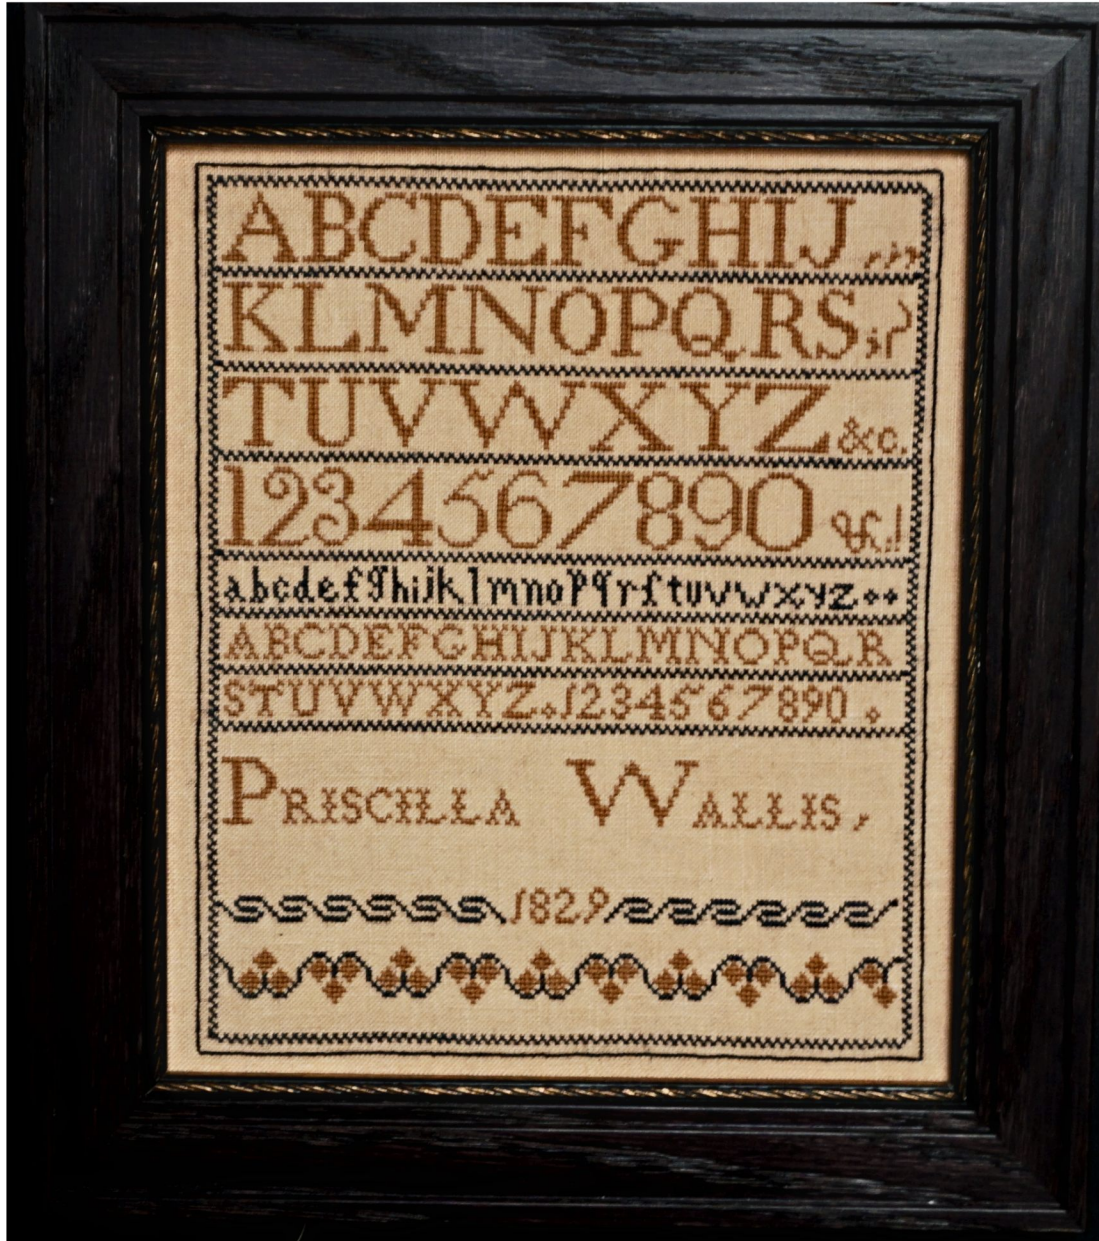 ABCDEFGHIJ ,;:?
KLMNOPQRS;?
TUVWXYZ &c.
1234567890 &!
abcdefghijklmnopqrſtuvwxyz
ABCDEFGHIJKLMNOPQR
STUVWXYZ.1234567890
PRISCILLA WALLIS,
1829